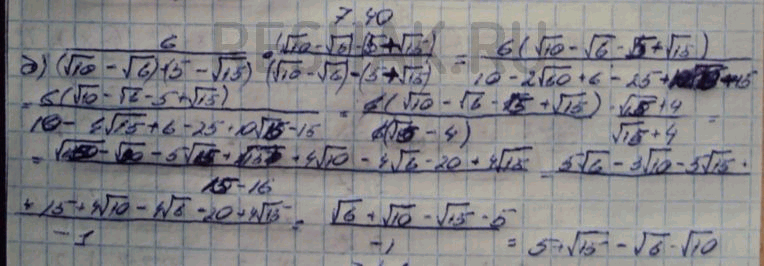 7 40
д) 6/((√10 - √6) + (5 - √15)) · ((√10 - √6) - (5 + √15))/((√10 - √6) - (5 + √15)) = 6(√10 - √6 - 5 + √15)/(10 - 2√60 + 6 - 25 + 15
= 6(√10 - √6 - 5 + √15)/(10 - 4√15 + 6 - 25 + 10√15 - 15) = 6(√10 - √6 - 5 + √15)/(6(√15 - 4)) · (√15 + 4)/(√15 + 4) =
= - 5√15 + 4√10 - 4√6 - 20 + 4√15/(15 - 16) = 5√6 - 3√10 - 5√15 +
+ 15 + 4√10 - 4√6 - 20 + 4√15/(-1) = (√6 + √10 - √15 - 5)/(-1) = 5 + √15 - √6 - √10
RESHAK.RU